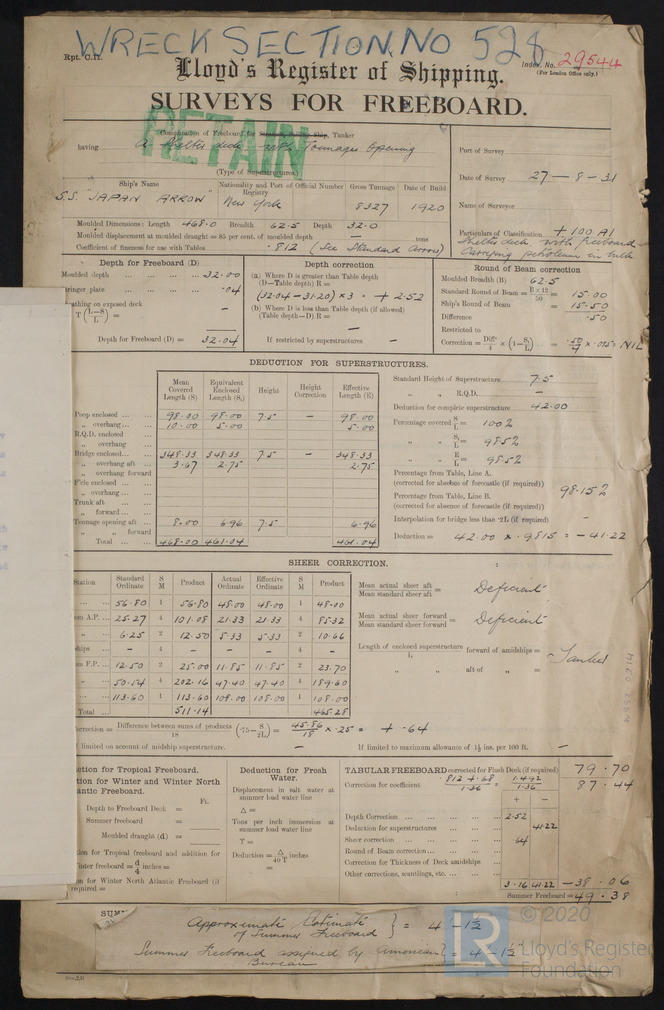 WRECK SECTION. NO 528
Rpt. C.11.
Index. No. 29544
(For London Office only.)
Lloyd's Register of Shipping.
SURVEYS FOR FREEBOARD.
RETAIN
Computation of Freeboard for Steamer, Sailing Ship, Tanker
having A Shelter deck with Tonnage Opening
(Type of Superstructures)
Port of Survey
Date of Survey 27-8-31
Name of Surveyor
Particulars of Classification + 100 A1
Shelter deck with freeboard
Carrying petroleum in bulk
Ship's Name
Nationality and Port of Registry
Official Number
Gross Tonnage
Date of Build
S.S. "JAPAN ARROW"
New York
8327
1920
Moulded Dimensions: Length 468.0 Breadth 62.5 Depth 32.0
Moulded displacement at moulded draught = 85 per cent. of moulded depth — tons
Coefficient of fineness for use with Tables .812 (See Standard Arrow)
Depth for Freeboard (D)
Moulded depth ... 32.00
ringer plate ... .04
athing on exposed deck
T (L-S/L) = —
Depth for Freeboard (D) = 32.04
Depth correction
(a) Where D is greater than Table depth
(D—Table depth) R =
(32.04-31.20) × 3 = + 2.52
(b) Where D is less than Table depth (if allowed)
(Table depth—D) R =
—
If restricted by superstructures —
Round of Beam correction
Moulded Breadth (B) 62.5
Standard Round of Beam = B×12/50 = 15.00
Ship's Round of Beam = 15.50
Difference .50
Restricted to
Correction = Diff/4 × (1-S/L) = .50/4 × .015 = NIL
DEDUCTION FOR SUPERSTRUCTURES.
Mean Covered Length (S)
Equivalent Enclosed Length (S₁)
Height
Height Correction
Effective Length (E)
Poop enclosed ... 98.00 98.00 7.5 — 98.00
„ overhang ... 10.00 5.00 5.00
R.Q.D. enclosed
„ overhang
Bridge enclosed... 348.33 348.33 7.5 — 348.33
„ overhang aft ... 3.67 2.75 2.75
„ overhang forward
F'cle enclosed ...
„ overhang ...
Trunk aft ...
„ forward ...
Tonnage opening aft ... 8.00 6.96 7.5 6.96
„ „ forward
Total ... 468.00 461.04 461.04
Standard Height of Superstructure 7.5
„ „ R.Q.D. —
Deduction for complete superstructure 42.00
Percentage covered S/L = 100%
„ „ S₁/L = 98.5%
„ „ E/L = 98.5%
Percentage from Table, Line A.
(corrected for absence of forecastle (if required))
Percentage from Table, Line B. 98.15%
(corrected for absence of forecastle (if required))
Interpolation for bridge less than ·2L (if required) —
Deduction = 42.00 × .9815 = -41.22
SHEER CORRECTION.
Station
Standard Ordinate
S M
Product
Actual Ordinate
Effective Ordinate
S M
Product
56.80 1 56.80 48.00 48.00 1 48.00
om A.P. ... 25.27 4 101.08 21.33 21.33 4 85.32
„ ... 6.25 2 12.50 5.33 5.33 2 10.66
ships ... — 4 — — — 4 —
om F.P. ... 12.50 2 25.00 11.85 11.85 2 23.70
„ ... 50.54 4 202.16 47.40 47.40 4 189.60
... 113.60 1 113.60 108.00 108.00 1 108.00
Total ... 511.14 465.28
Mean actual sheer aft
Mean standard sheer aft = Deficient
Mean actual sheer forward
Mean standard sheer forward = Deficient
Length of enclosed superstructure forward of amidships =
L
„ aft of „ =
Tanker
orrection = Difference between sums of products/18 (·75- S/2L) = 45.86/18 × .25 = + .64
limited on account of midship superstructure. —
If limited to maximum allowance of 1½ ins. per 100 ft. —
ection for Tropical Freeboard.
tion for Winter and Winter North
antic Freeboard.
Ft.
Depth to Freeboard Deck =
Summer freeboard =
Moulded draught (d) =
tion for Tropical freeboard and addition for
inter freeboard = d/4 inches =
on for Winter North Atlantic Freeboard (if
required =
Deduction for Fresh Water.
Displacement in salt water at
summer load water line
Δ =
Tons per inch immersion at
summer load water line
T =
Deduction = Δ/40T inches
=
TABULAR FREEBOARD corrected for Flush Deck (if required) 79.70
Correction for coefficient .812+.68/1.36 = 1.492/1.36 87.44
+ -
Depth Correction ... 2.52
Deduction for superstructures ... 41.22
Sheer correction ... .64
Round of Beam correction ...
Correction for Thickness of Deck amidships
Other corrections, scantlings, etc. ...
3.16 41.22 -38.06
Summer Freeboard = 49.38
SUM
Approximate Estimate
of Summer Freeboard } = 4 - 1½
Summer Freeboard assigned by American
Bureau } = 4 - 1½
© 2020
LR
Lloyd's Register
Foundation